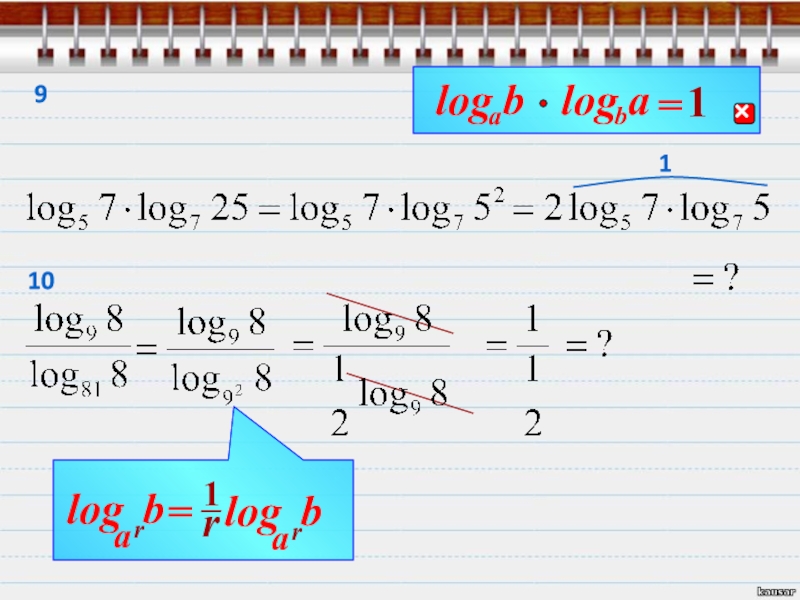 9
logₐb · log_b a = 1
1
log₅ 7 · log₇ 25 = log₅ 7 · log₇ 5² = 2 log₅ 7 · log₇ 5
= ?
10
(log₉ 8)/(log₈₁ 8) = (log₉ 8)/(log_{9²} 8) = (log₉ 8)/(1/2 log₉ 8) = 1/(1/2) = ?
log_{a^r} b = 1/r log_{a^r} b
kausar